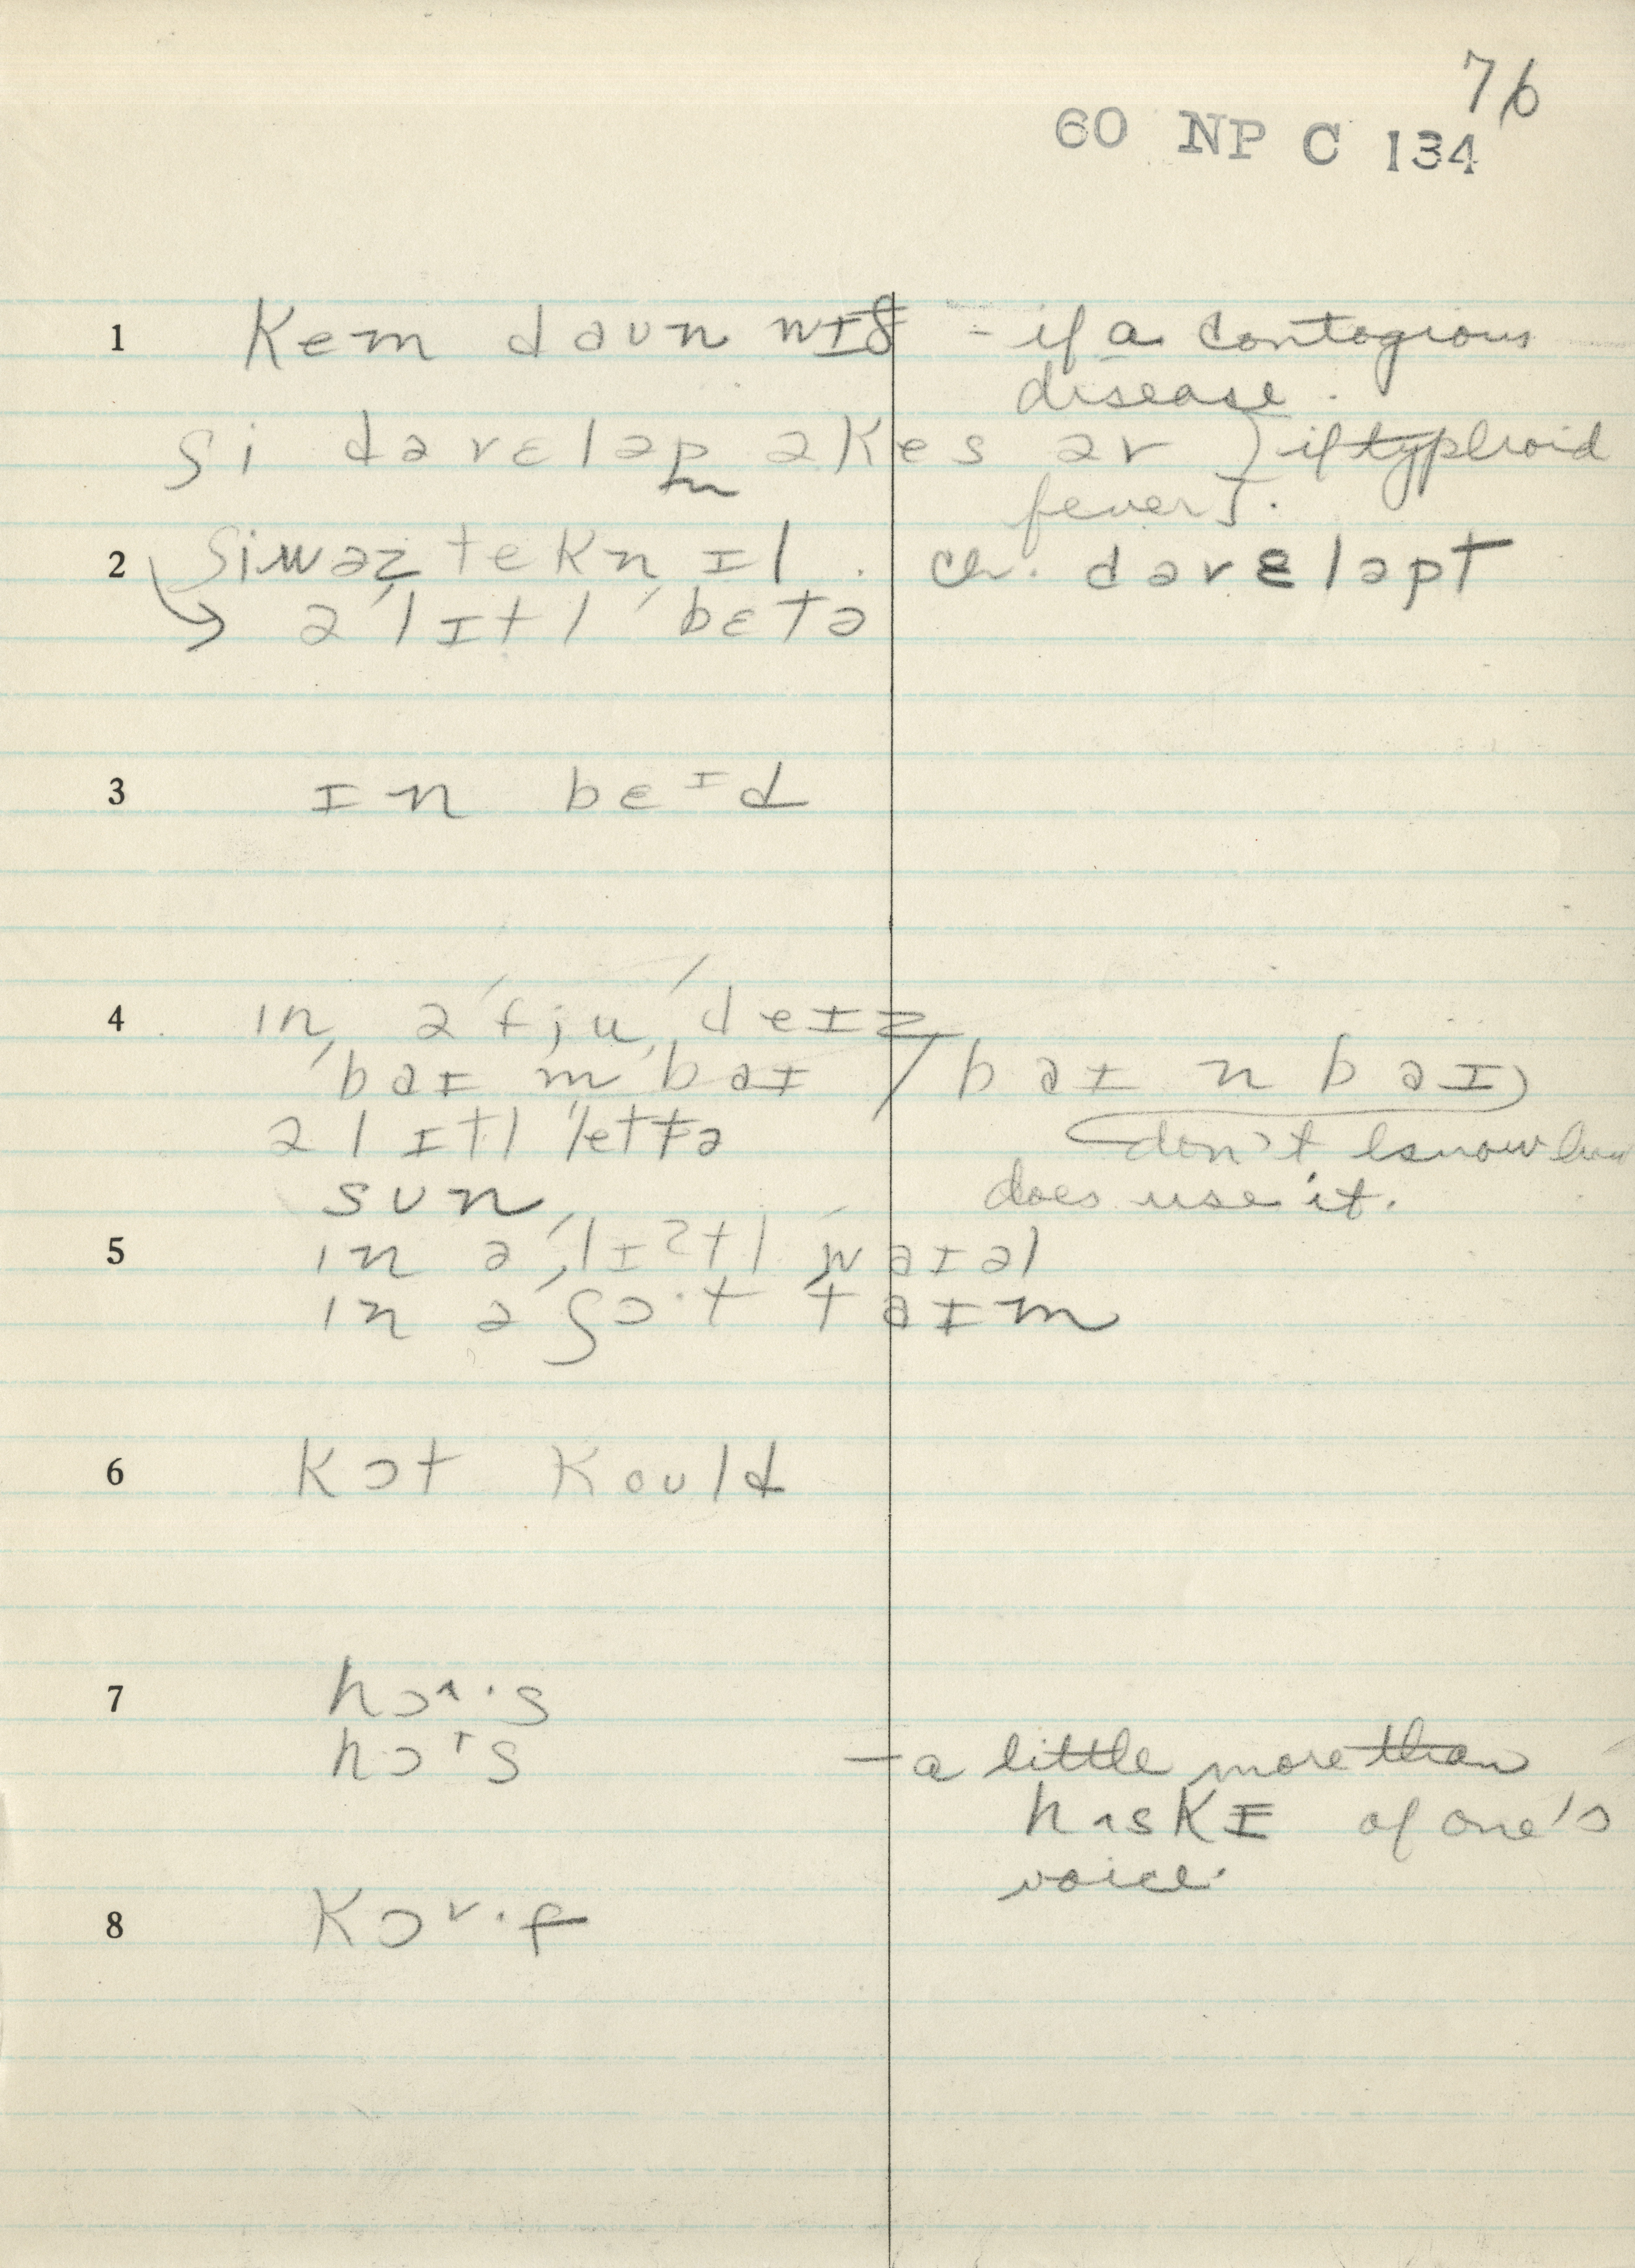 76
60 NP C 134
1 kem daʊn wɪð - if a contagious
disease.
ʃi dəvɛləp əkes əv } if typhoid
fever}.
2 ʃiwəz tekn ɪl. ch. dəvɛləpt
→ ə 'lɪtl 'bɛtə
3 ɪn beᴵd
4 in ə 'fju 'deɪz
'baɪ m 'baɪ / baɪ n baɪ)
ə lɪtl 'letə don't know
sun does use it.
5 in ə 'lɪʔtl 'waɪəl
in ə 'ʃɔ·t taɪm
6 kɔt kould
7 hɔ^·s
hɔᶦs - a little more than
hʌskɪ of one's
voice.
8 kɔᵛ·f